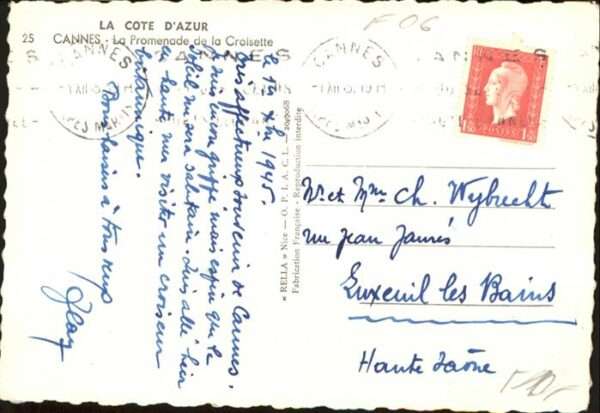 LA COTE D'AZUR
25 CANNES - La Promenade de la Croisette
CANNES
CANNES
F 06
le 1er Xbre 1945.
Bien affectueux souvenir de Cannes.
suis encore grippé mais espère que le
soleil me sera salutaire. Suis allé hier
au haute mer visiter un croiseur
britannique.
Bons baisers à tous deux
« RELLA » Nice — O. P. I. A. C. L. —
Fabrication Française - Reproduction Interdite
POSTES
Mr et Mme Ch. Weybrecht
rue Jean Jaurès
Luxeuil les Bains
Haute Saône